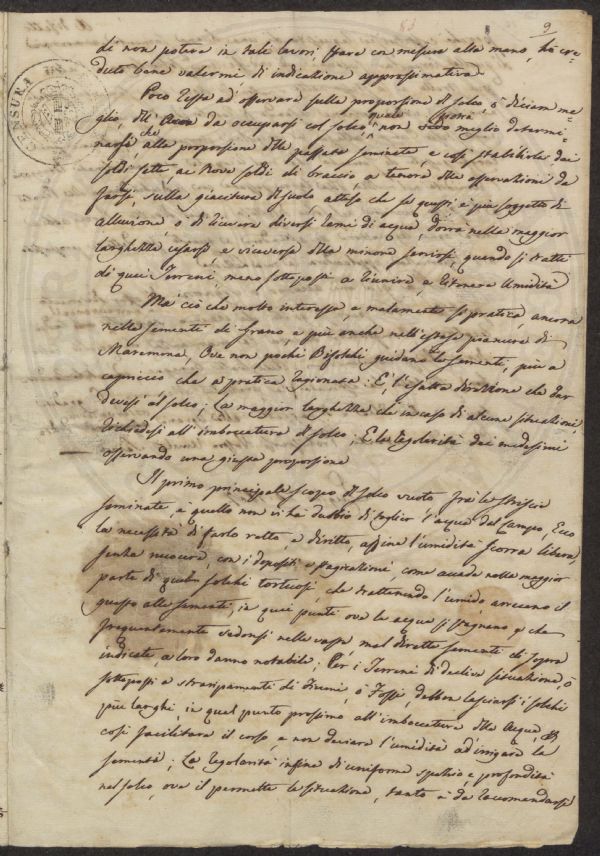 9
CENSURA
di non potersi in tali lavori, stare con misura alla mano, ho cre-
duto bene valermi di indicazione approssimativa.
Poco resta ad osservare sulla proporzione di solco, o diciam me-
glio, da occuparsi col solco, quale non potrà meglio determi-
narsi, che alla porzione della passata seminata, e così stabilirla dai
soldi sette ai nove soldi di braccio a tenore delle osservazioni da
farsi, sulla giacitura di suolo atteso che se questi è più soggetto di
alluvione, o di ricevere diversi rami di acqua, dovrà nella maggior
larghezza, e viceversa della minore servirsi, quando si tratti
di quei Terreni, meno sottoposti a riunire, a ritenere umidità
Ma ciò che molto interessa, e malamente si pratica, ancora
nelle sementi di Grano, e più anche nell'estese pianure di
Maremma, Ove non pochi Bifolchi guidano le sementi, più a
capriccio che a pratica ragionata: È l'esatta direzione che dar
devesi al solco; La maggior larghezza che in caso di alcune situazioni,
richiedesi all'imboccatura di solco; E la regolarità dei medesimi
osservando una giusta proporzione
Il primo principale scopo di solco vuoto frà le striscie
seminate, è quello non vi ha dubbio di toglier l'acqua dal Campo, Ecco
la necessità di farlo retto, e diritto, affine l'umidità scorra libera,
senza nuocere, con i depositi e stagnazioni, come accade nella maggior
parte di quei solchi tortuosi, che trattenendo l'umido arrecano il
guasto alle sementi, in quei punti ove le acque si stagnano, che
frequentemente vedonsi nelle vaste, mal dirette sementi di sopra
indicate, a loro danno notabile; Per i Terreni di declive situazione, o
sottoposti a straripamenti di fiumi, o Fossi, debbon lasciarsi i solchi
più larghi, in quel punto prossimo all'imboccatura delle Acque,
così facilitare il corso, e non deviare l'umidità ad irrigare la
sementa; La regolarità infine di uniforme spazio, e profondità
nel solco, ove il permette la situazione, tanto è da raccomandarsi